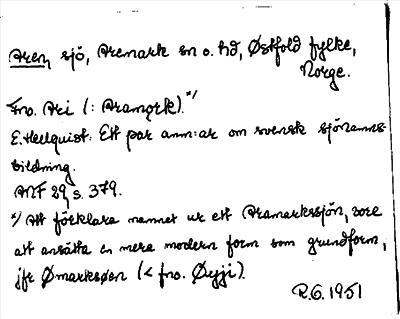 Aren, sjö, Aremark sn o. hd, Østfold fylke,
Norge.
Fno. Ari (: Aramǫrk).*)
E. Hellquist: Ett par anm:ar om svensk sjönamns-
bildning.
ANF 29, s. 379.
*) Att förklara namnet ur ett Aramarkssjön, vore
att ansätta en mera modern form som grundform,
jfr Ømarksøen (< fno. Øyji).
R.G. 1951